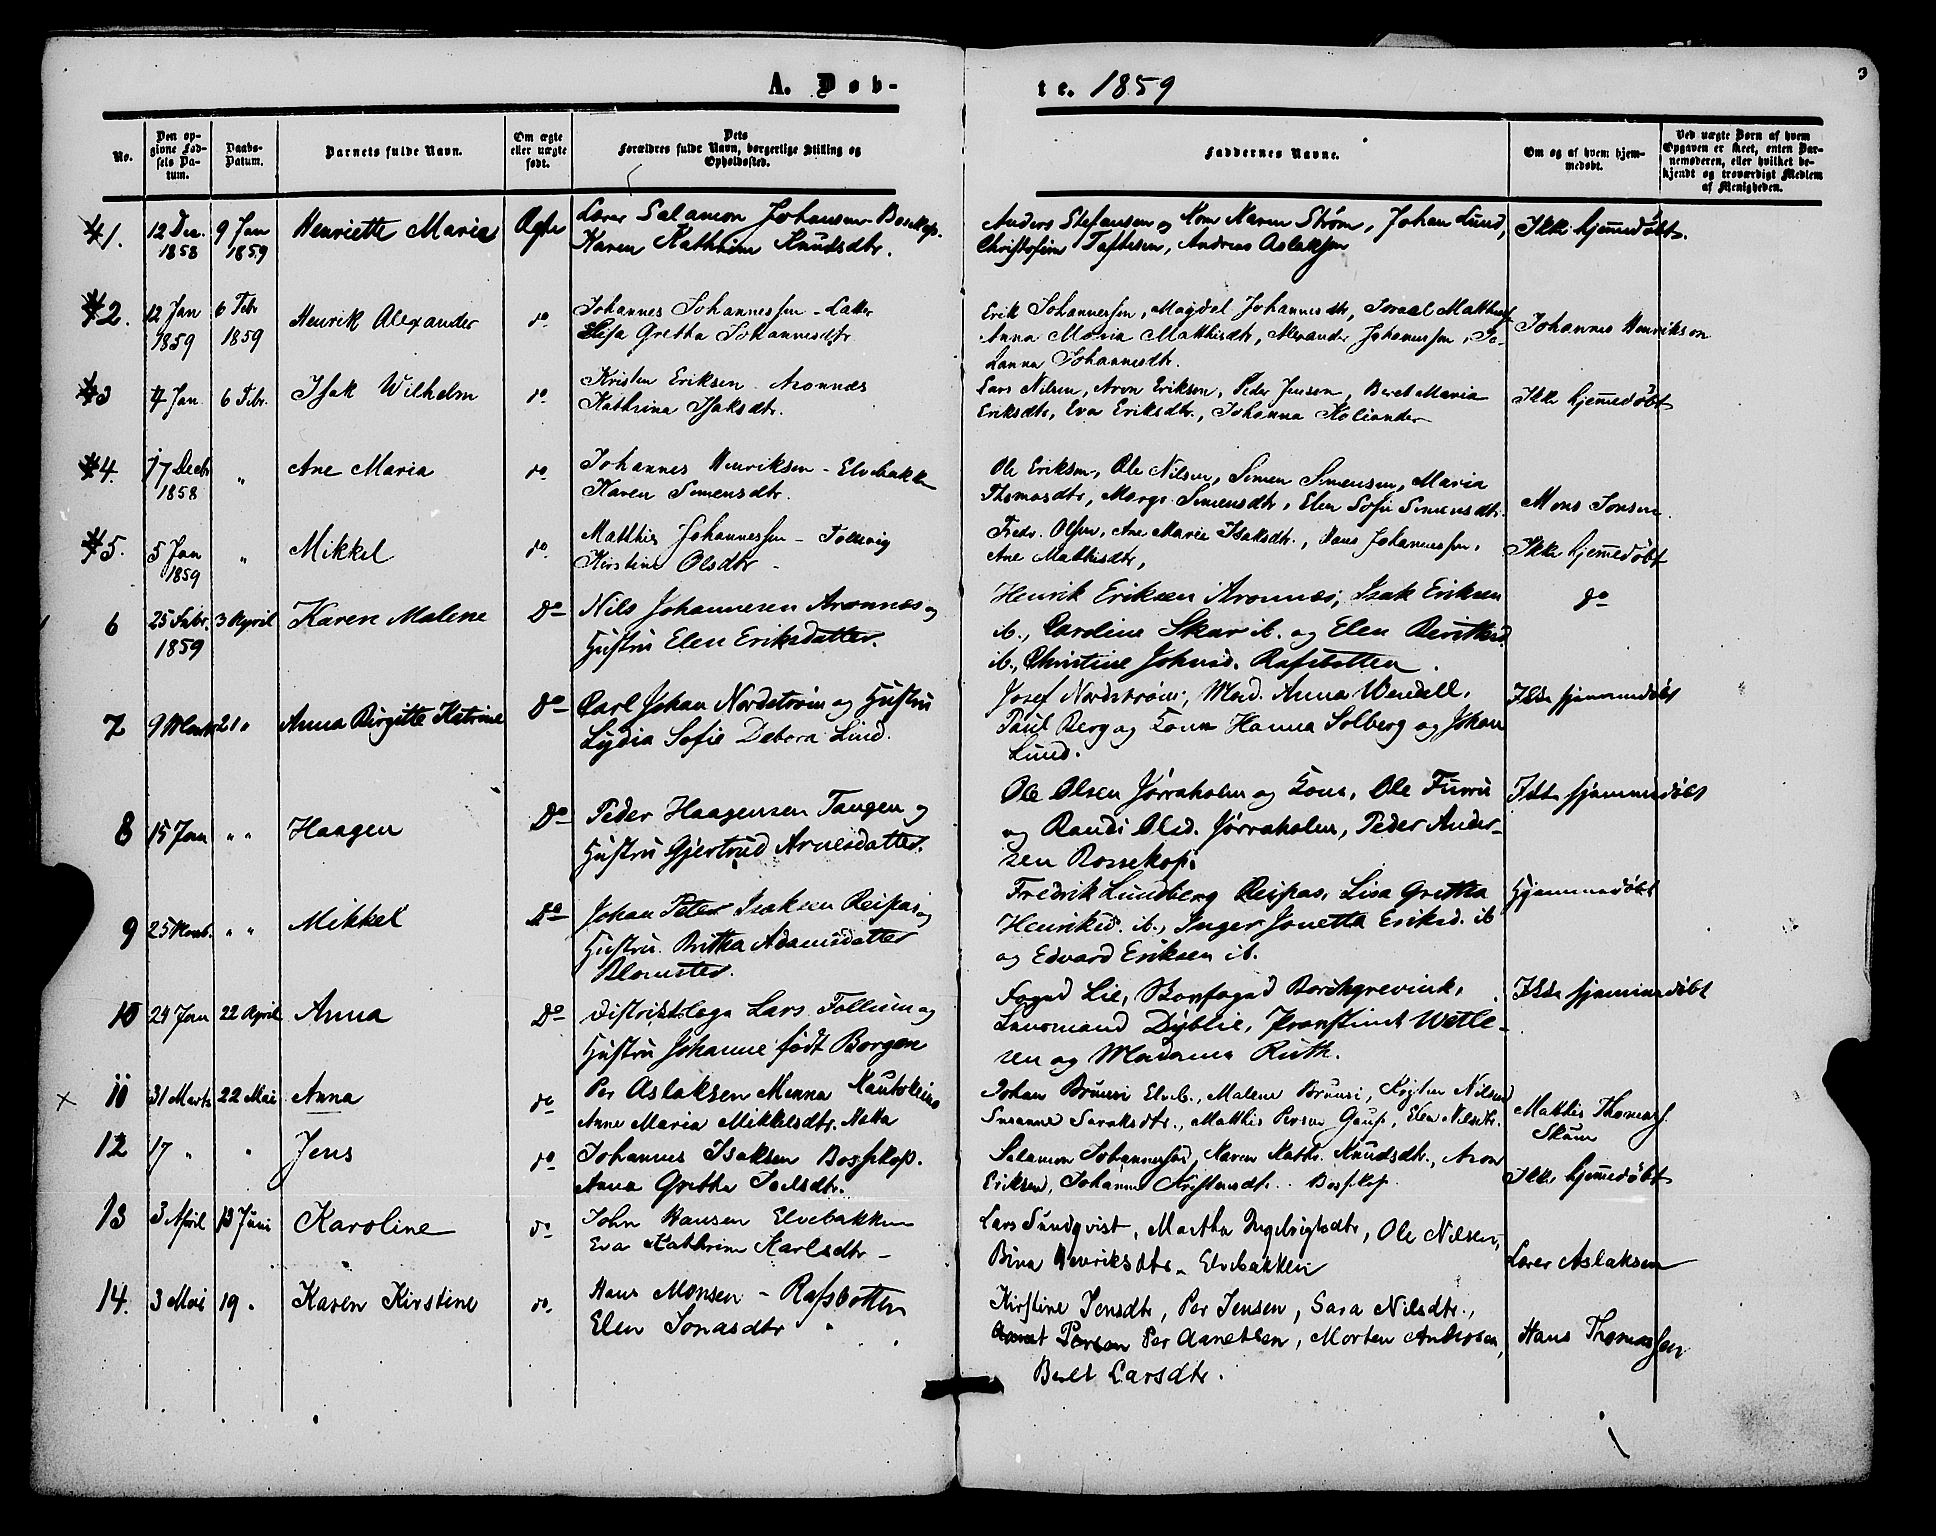 3
A. Døb-
te. 1859
No.
Den op-
givne Fød-
sels Da-
tum.
Daabs-
Datum.
Barnets fulde Navn.
Om ægte
eller uægte
født.
Dets
Forældres fulde Navn, borgerlige Stilling og
Opholdssted.
Faddernes Navne.
Om og af hvem hjem-
medøbt.
Ved uægte Børn af hvem
Opgaven er skeet, enten Bar-
nemoderen, eller hvilket be-
kjendt og troværdigt Medlem
af Menigheden.
1. 12 Dec. 1858 9 Jan 1859 Henriette Maria Ægte
Lærer Salamon Johansen Bossekop.
Karen Kathrine Knudsdtr.
Anders Stefansen og Kone Karen Strøm, Johan Lund,
Christofine Taftesen, Andreas Aslaksen
Ikke hjemmedøbt.
2. 12 Jan 1859 6 Febr 1859 Henrik Alexander do
Johannes Johannessen - Latter
Lisa Gretha Johannesdtr
Erik Johannessen, Magdel Johannesdtr, Israel Matthisf
Anna Maria Matthisdtr, Alexander Johannessen, Jo-
hanna Johannesdtr.
Johannes Henriksen
3 4 Jan 6 Febr. Isak Wilhelm do
Kristen Eriksen Aronnæs
Kathrina Isaksdtr.
Lars Nilsen, Aron Eriksen, Peder Jensen, Beret Maria
Eriksdtr, Eva Eriksdtr., Johanna Koliander
Ikke hjemmedøbt
4. 17 Decbr 1858 " Ane Maria do
Johannes Henriksen - Elvebakken
Karen Simensdtr.
Ole Eriksen, Ole Nilsen, Simen Simensen, Maria
Thomasdtr, Margr. Simensdtr, Elen Sofie Simensdtr.
Mons Jonsen
5. 5 Jan 1859 " Mikkel do
Matthis Johannessen - Tollevig
Kirstine Olsdtr -
Fredr. Olsen, Ane Marie Isaksdtr., Hans Johannessen,
Ane Mathisdtr,
Ikke hjemmedøbt
6 25 Febr. 1859 3 April Karen Malene Do
Nils Johannesen Aronnæs og
Hustru Elen Eriksdatter.
Henrik Eriksen Aronnæs, Isak Eriksen
ib., Caroline Skar ib. og Elen
ib., Christine Johnsd. Rafsbotten.
do
7 9 Marts 21 " Anna Birgitte Katrine Do
Carl Johan Nordstrøm og Hustru
Lydia Sofie Debora Lind.
Josef Nordstrøm, Mad. Anna Wendell,
Paul Berg og Kone Hanna Solberg og Johan
Lund.
Ikke hjemmedøbt
8 15 Jan " " Haagen Do
Peder Haagensen Tangen og
Hustru Gjertrud Arnesdatter.
Ole Olsen Jørraholm og Kone, Ole Furru
og Randi Olsd. Jørraholm, Peder Ander-
sen Bossekop.
Ikke hjemmedøbt
9 25 " " Mikkel Do
Johan Peter Isaksen Reipas og
Hustru Britha Adamsdatter
Blomster.
Fredrik Lundberg Reipas, Lisa Gretha
Henriksd. ib., Inger Jonetta Eriksd. ib
og Edvard Eriksen ib.
Hjemmedøbt
10 24 Jan 22 April Anna Do
Distriktslæge Lars Tollum og
Hustru Johanne født Borgen
Foged Lie, Skovfoged Borchgrevink,
Lensmand Dyblie, Premtlient Wetle-
sen og Madame Ruth.
Ikke hjemmedøbt
11 31 Marts 22 Mai Anna do
Per Aslaksen Menna Kautokeino
Anne Maria Mikkelsdtr.
Johan Bruuri Elveb., Malene Bruuri, Nilsen
Susanne Saraksdtr., Matthis Persen Gaup, Elen Nilsdtr.
Matthis Thomasf.
Skum
12 17 " " Jens do
Johannes Isaksen Bossekop.
Anna Gretha Joelsdtr.
Salamon Johannessen, Karen Kathr. Knudsdtr., Aron
Eriksen, Johanne Kristensdtr. Bossekop
Ikke hjemmedøbt
13 3 April 13 Juni Karoline do
John Hansen Elvebakken
Eva Kathrine Karlsdtr -
Lars Sundqvist, Martha Ingebrigtsdtr, Ole Nilsen,
Bina Henriksdtr. Elvebakken
Lærer Aslaksen
14. 3 Mai 19 " Karen Kirstine do
Hans Monsen - Rafsbotten
Elen Jonasdtr "
Kirstine Jensdtr, Per Jensen, Sara Nilsdtr.,
Per Aanetsen, Morten Andersen,
Beret Larsdtr.
Hans Thomassen